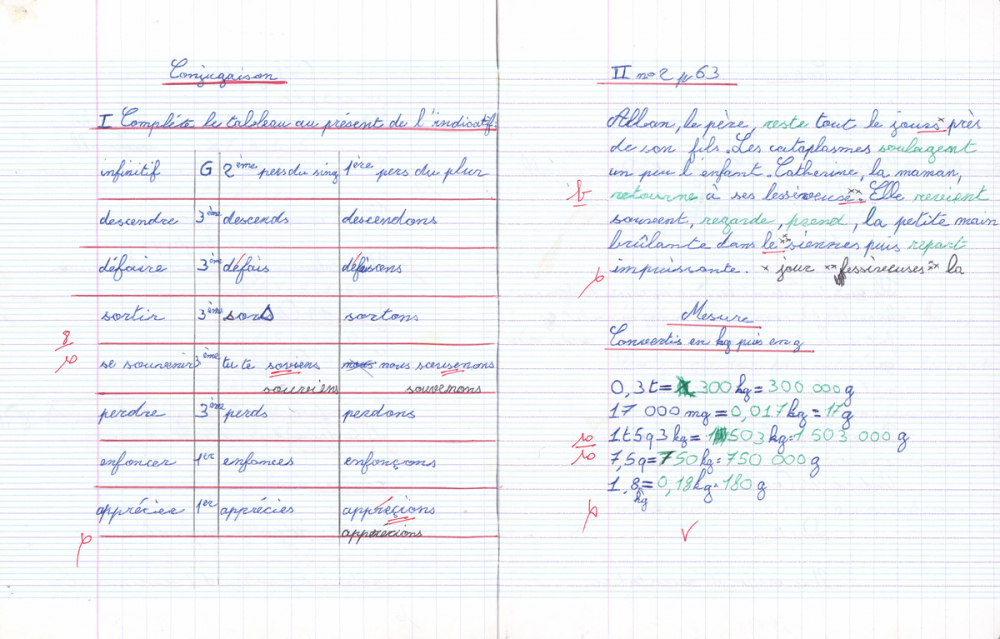 Conjugaison
I Complète le tableau au présent de l'indicatif:
infinitif G 2ème pers du sing 1ère pers du plur
descendre 3ème descends descendons
défaire 3ème défais défaisons
sortir 3ème sors sortons
8
10
se souvenir 3ème tu te soviens nous sousenons
souviens souvenons
perdre 3ème perds perdons
enfoncer 1er enfonces enfonçons
apprécier 1er apprécies appreçions
apprécions
II n=2 p 63
Alban, le père, reste tout le jours x près
de son fils. Les cataplasmes soulagent
un peu l'enfant. Catherine, la maman,
retourne à ses lessiveuse xx. Elle revient
souvent, regarde, prend, la petite main
brûlante dans le siennes puis repart
impuissante. x jour xx lessiveuses xx la
Mesure
Convertis en kg puis en g
0,3t= 300 kg = 300 000 g
17 000 mg = 0,017 kg = 17 g
10
10
1t5q3kg = 1503 kg = 1 503 000 g
7,5q = 750 kg = 750 000 g
1,8 = 0,18 kg = 180 g
kg